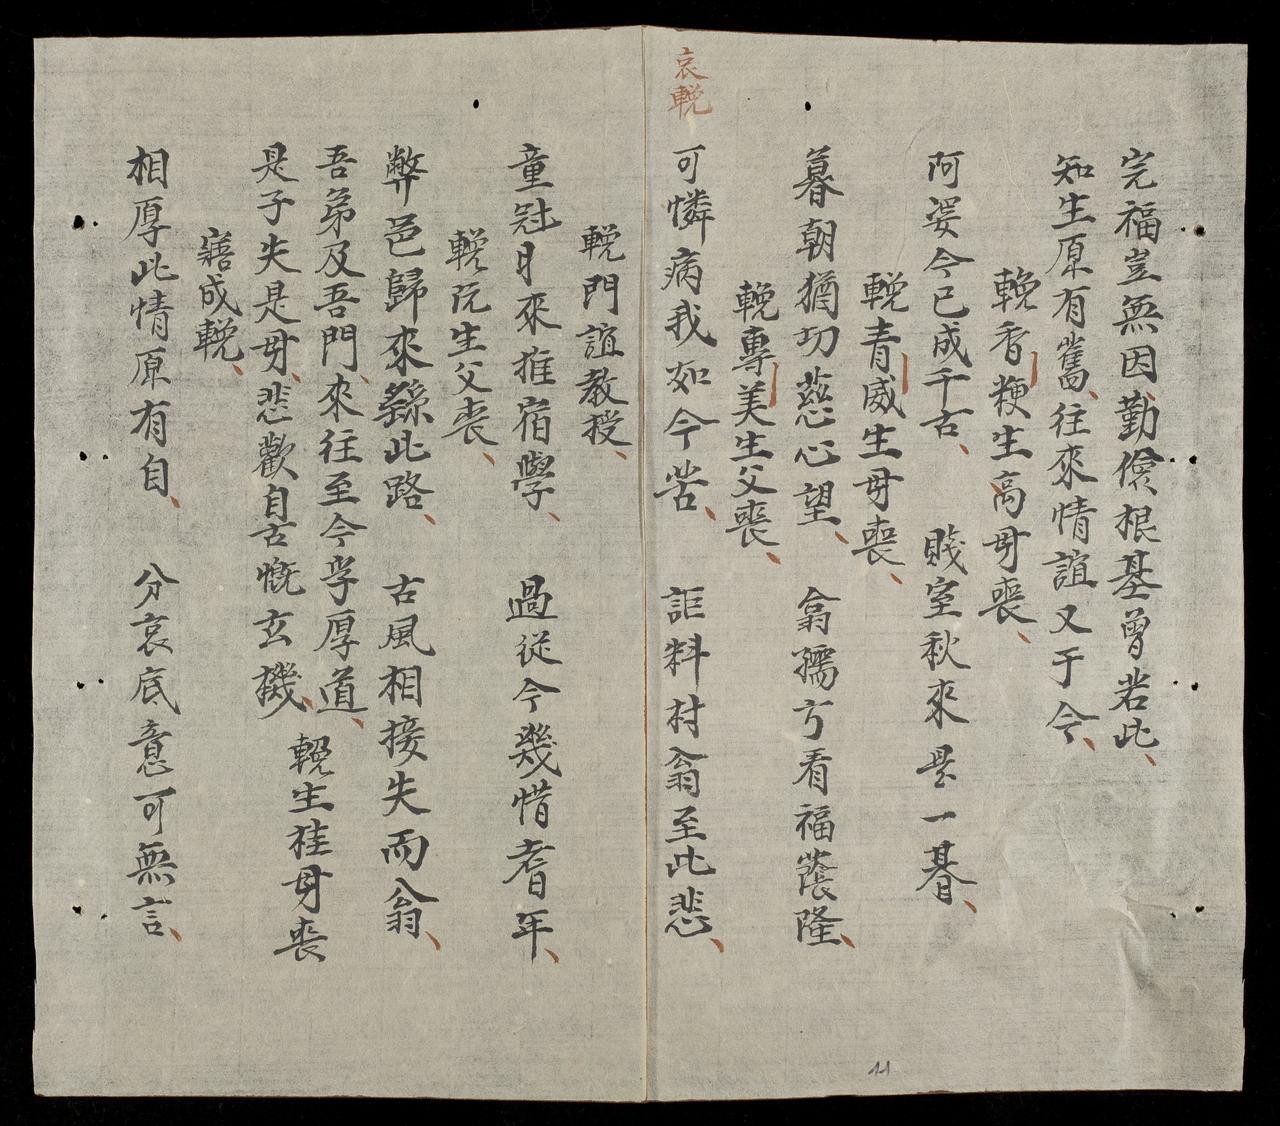 完福豈無因勤儉根基曾若此
知生原有舊往來情誼又于今
輓香粳生高母喪
阿婆今已成千古 賤室秋來是一朞
輓青威生母喪
暮朝猶切慈心望 翕孺方看福蔭隆
輓專美生父喪
哀輓
可憐病我如今苦 詎料村翁至此悲
輓門誼教授
童冠日來推宿學 過從今幾惜耆年
輓阮生父喪
弊邑歸來繇此路 古風相接失而翁
吾弟及吾門來往至今孚厚道
輓生桂母喪
是子失是母悲歡自古慨玄機
寤成輓
相厚此情原有自 分哀底意可無言
11